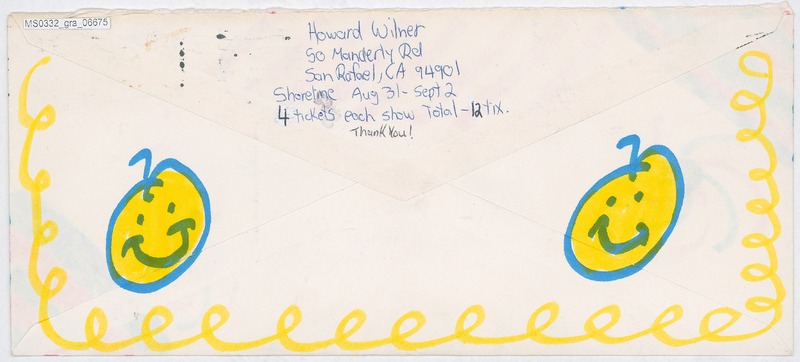 MS0332_gra_06675
Howard Wilner
50 Manderly Rd
San Rafael, CA 94901
Shoreline Aug 31 - Sept 2
4 tickets each show Total - 12 tix.
Thank You!